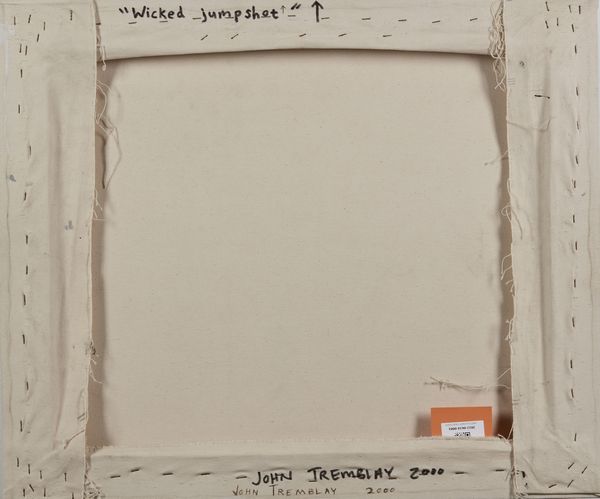 "Wicked jumpshot" ↑
JOHN TREMBLAY 2000
JOHN TREMBLAY 2000